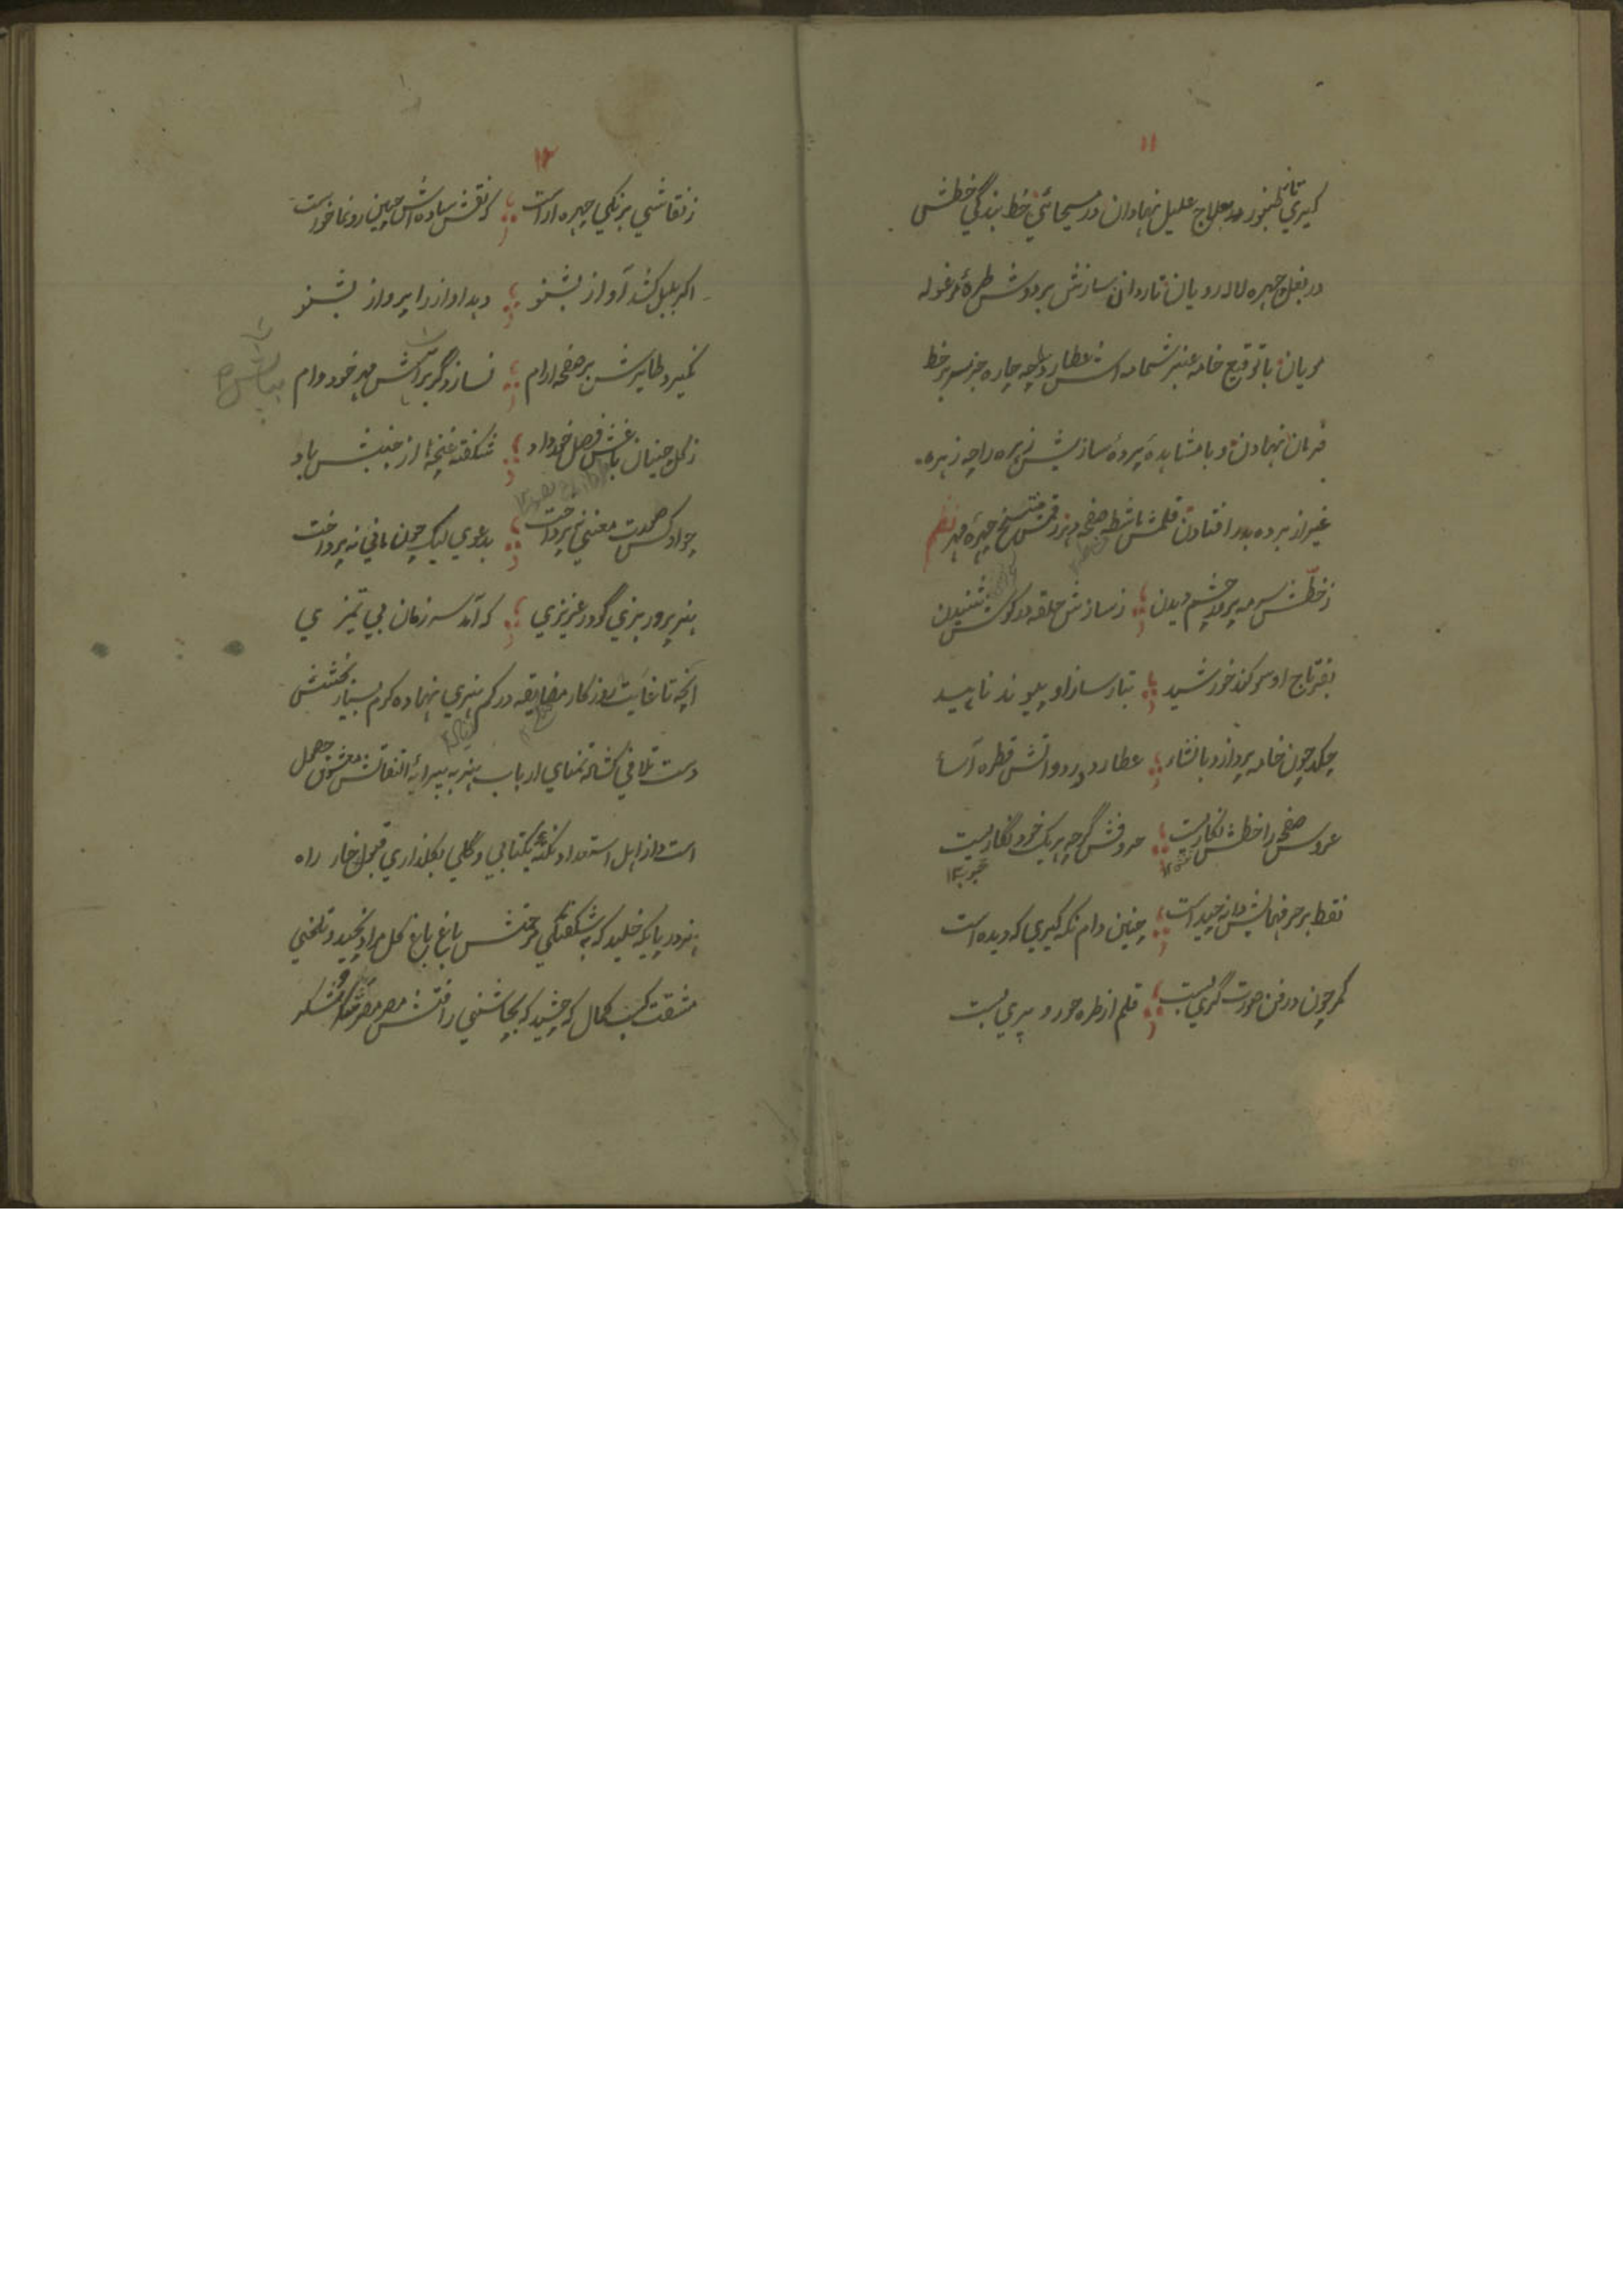 ۱۱
کیری تار طنبور در علاج علیل نهادان در مسیحائی خط بندگی خطش
در بغل چهره لاله رویان تار دان سازش بر دوش طره مرغوله
مویان با توقیع خامه عنبر شمامه اش عطارد را چه چاره جز سر بر خط
فرمان نهادن و با مشاهده پرده سازیش زهره را چه زهره
غیر از پرده بدر افتادن قلمش مشاطه صفحه رقمش نسخ چهره مهر نظم
ز خطش سرمه پرور چشم دیدن ز سازش حلقه در کوش شنیدن
بفر تاج او سر کند خورشید بتار ساز او پیوند ناهید
چکد چون خامه پردازد بانشاء عطارد در دواتش قطره آسا
عروس صفحه را خطش نکاریست حروفش کرچه هر یک خود نکاریست
نقط بر حرفهایش دانه چیداست چنین دام نکه کیری که دیده است
کمر چون در فن صورت کری بست قلم از طره حور و پری بست
۱۲
ز نقاشی برنکی چهره آراست که نقش ساده اش از چین رونما خواست
اکر بلبل کشد آواز بشنو دید آواز را پرواز بشنو
نمیرد طایرش بر صفحه آرام نسازد کر پر اتش مهر خود دام
ز کل چینان باغش فصل خرداد شکفته غنچها از جنبش باد
چو او کس صورت معنی نپرداخت بدعوی لیک چون مانی نه پرداخت
هنر پرور بزی کو در عزیزی که آمد سر زمان بی تمیزی
آنچه تا غایت روزکار مضایقه در کم هنری نهاده کرم بسیار بخشش
دست تلافی کشاده تمنای ارباب هنر به پیرایه التفاتش معشوق حصول
است و از اهل استعداد نکته بکتابی و کلی بکلذاری قبول خار راه
هنر در پا که خلید که به شکفتکی مرحمتش باغ باغ کل مراد نچید و تلخی
مشقت کسب کمال که چشید که بچاشنی رافتش مصر مصر شکر